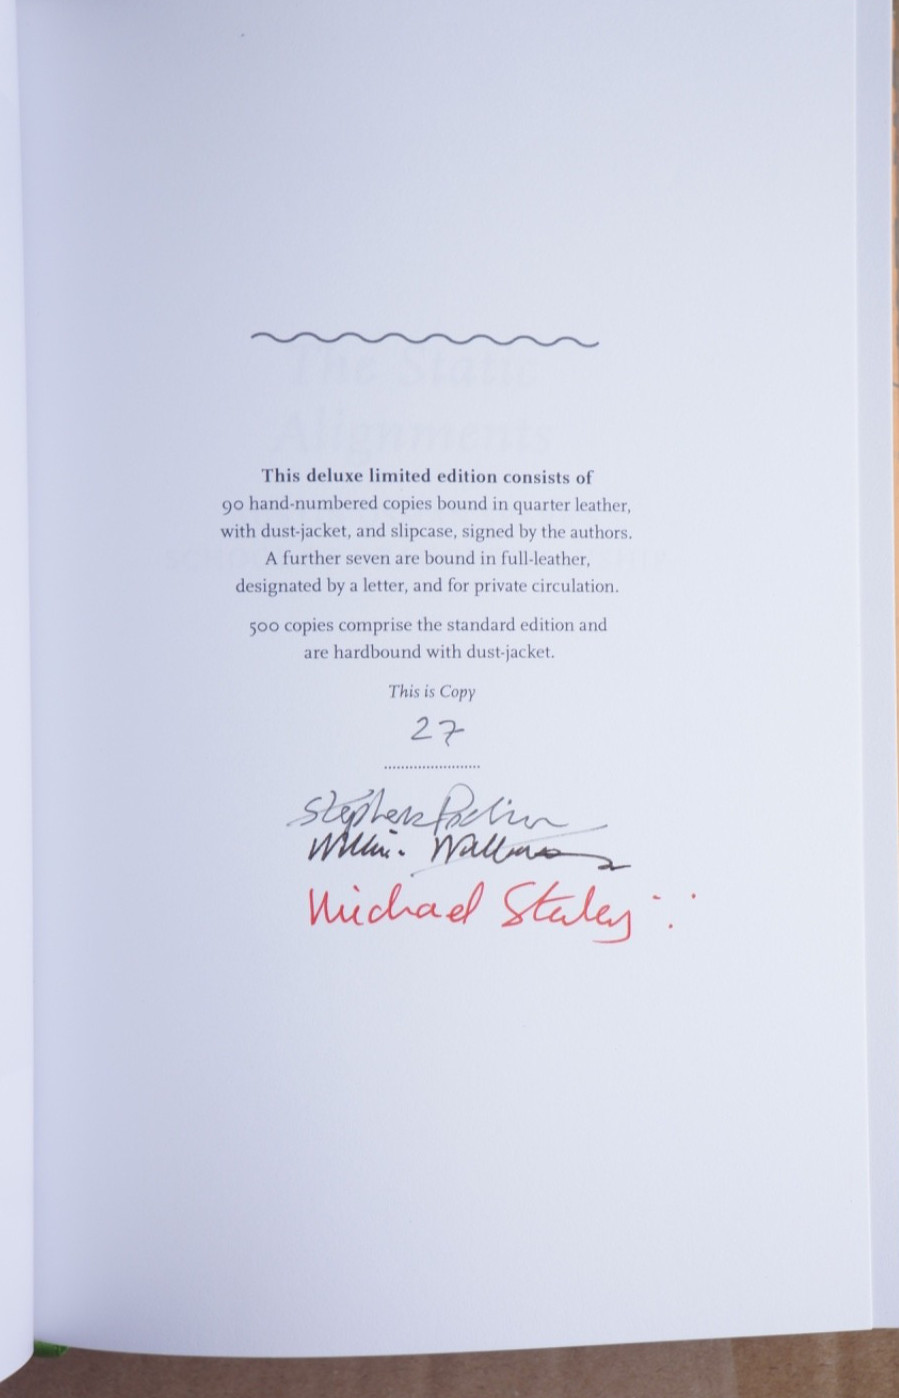 The Static
Alignments
This deluxe limited edition consists of
90 hand-numbered copies bound in quarter leather,
with dust-jacket, and slipcase, signed by the authors.
A further seven are bound in full-leather,
designated by a letter, and for private circulation.
500 copies comprise the standard edition and
are hardbound with dust-jacket.
This is Copy
27
Stephen
Michael Staley